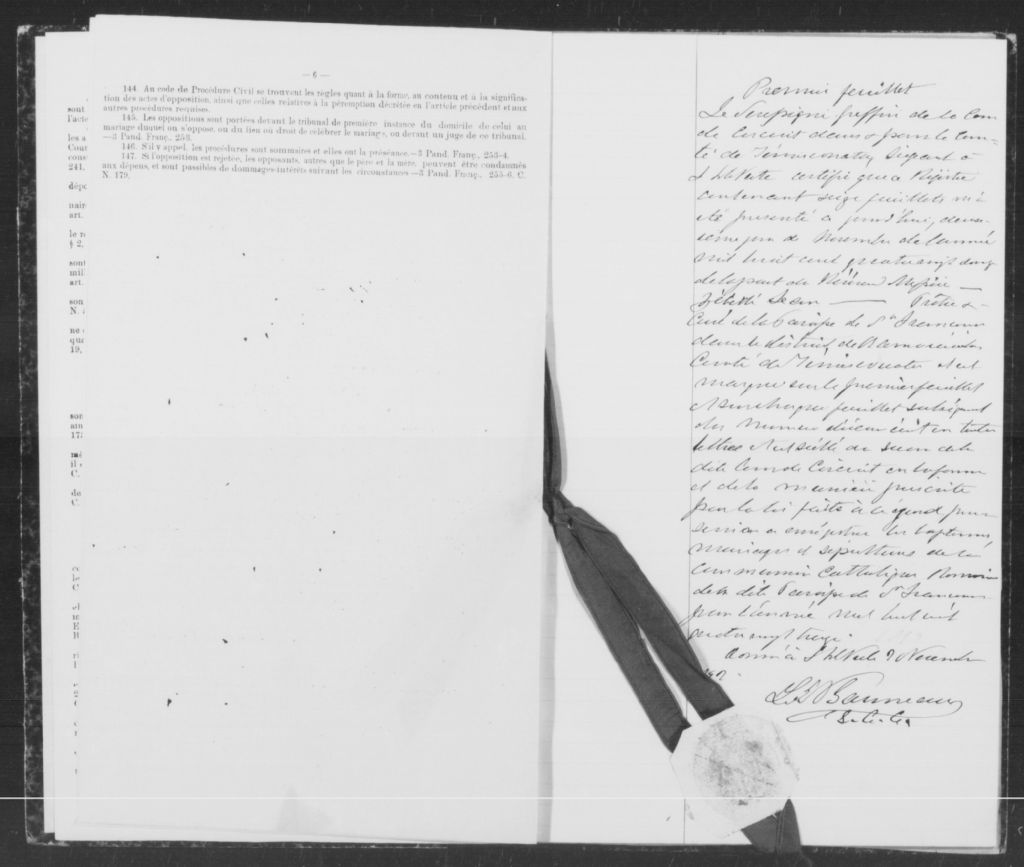 sont
l'acte
les a
Cont
cons
241.
dépo
nair
art.
le re
§ 2.
sont
mil
art.
son
ne
que
19.
son
ain
17
mê
il
C.
de
C.
— 6 —
144. Au code de Procédure Civil se trouvent les règles quant à la forme, au contenu et à la significa-
tion des actes d'opposition, ainsi que celles relatives à la péremption décrétée en l'article précédent et aux
autres procédures requises.
145. Les oppositions sont portées devant le tribunal de première instance du domicile de celui au
mariage duquel on s'oppose, ou du lieu où droit de célébrer le mariage, ou devant un juge de ce tribunal.
—3 Pand. Franç., 253.
146. S'il y appel, les procédures sont sommaires et elles ont la préséance.—3 Pand. Franç., 253-4.
147. Si l'opposition est rejetée, les opposants, autres que le père et la mère, peuvent être condamnés
aux dépens, et sont passibles de dommages-intérêts suivant les circonstances.—3 Pand. Franç., 255-6. C.
N. 179.
Premier feuillet
Le Soussigné greffier de la Cour
de Circuit dans & pour le Com-
té de Témiscouata, Siégeant à
certifie que ce Régistre
contenant seize feuillets m'a
été présenté aujourd'hui,
jour de Novembre de l'année
mil huit cent quatre vingt douze
de la part de Révérend Messire —
Jean — Prêtre &
Curé de la Paroisse de St
dans le district de
Comté de Témiscouata et est
marqué sur le premier feuillet
& sur chaque feuillet subséquent
du numéro écrit en toutes
lettres et est scellé du sceau de la
dite Cour de Circuit en la forme
et de la manière prescrite
par la loi faite à ce égard pour
servir à enrégistrer les baptêmes,
mariages et sépultures de la
Communion Catholique Romaine
de la dite Paroisse de St
pour l'année mil huit cent
quatre vingt treize.
Donné à 9 Novembre